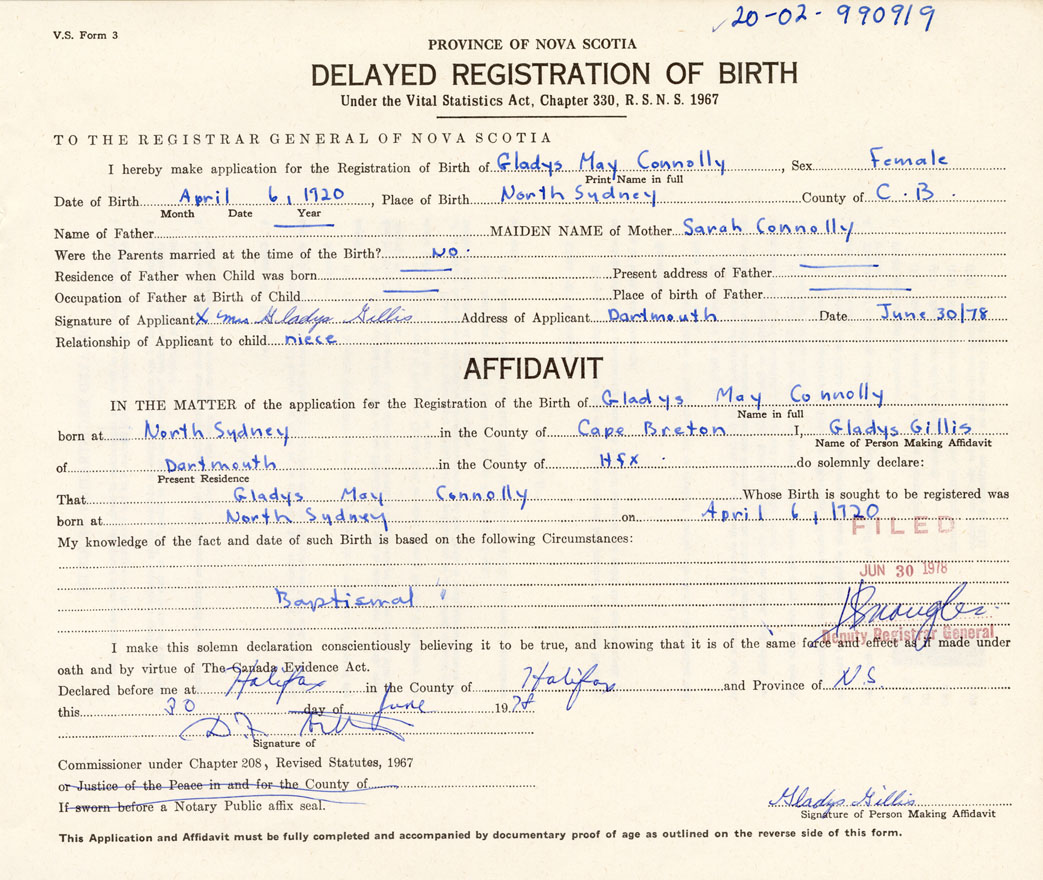 20-02-990919
V.S. Form 3
PROVINCE OF NOVA SCOTIA
DELAYED REGISTRATION OF BIRTH
Under the Vital Statistics Act, Chapter 330, R.S.N.S. 1967
TO THE REGISTRAR GENERAL OF NOVA SCOTIA
I hereby make application for the Registration of Birth of Gladys May Connolly, Sex Female
Print Name in full
Date of Birth April 6, 1920, Place of Birth North Sydney County of C.B.
Month Date Year
Name of Father MAIDEN NAME of Mother Sarah Connolly
Were the Parents married at the time of the Birth? No.
Residence of Father when Child was born Present address of Father
Occupation of Father at Birth of Child Place of birth of Father
Signature of Applicant X Mrs Gladys Gillis Address of Applicant Dartmouth Date June 30/78
Relationship of Applicant to child niece
AFFIDAVIT
IN THE MATTER of the application for the Registration of the Birth of Gladys May Connolly
Name in full
born at North Sydney in the County of Cape Breton I, Gladys Gillis
Name of Person Making Affidavit
of Dartmouth in the County of Hfx. do solemnly declare:
Present Residence
That Gladys May Connolly Whose Birth is sought to be registered was
born at North Sydney on April 6, 1920
FILED
My knowledge of the fact and date of such Birth is based on the following Circumstances:
JUN 30 1978
Baptismal
Deputy Registrar General
I make this solemn declaration conscientiously believing it to be true, and knowing that it is of the same force and effect as if made under
oath and by virtue of The Canada Evidence Act.
Declared before me at Halifax in the County of Halifax and Province of N.S
this 30 day of June 1978
Signature of
Commissioner under Chapter 208, Revised Statutes, 1967
or Justice of the Peace in and for the County of
If sworn before a Notary Public affix seal.
Gladys Gillis
Signature of Person Making Affidavit
This Application and Affidavit must be fully completed and accompanied by documentary proof of age as outlined on the reverse side of this form.